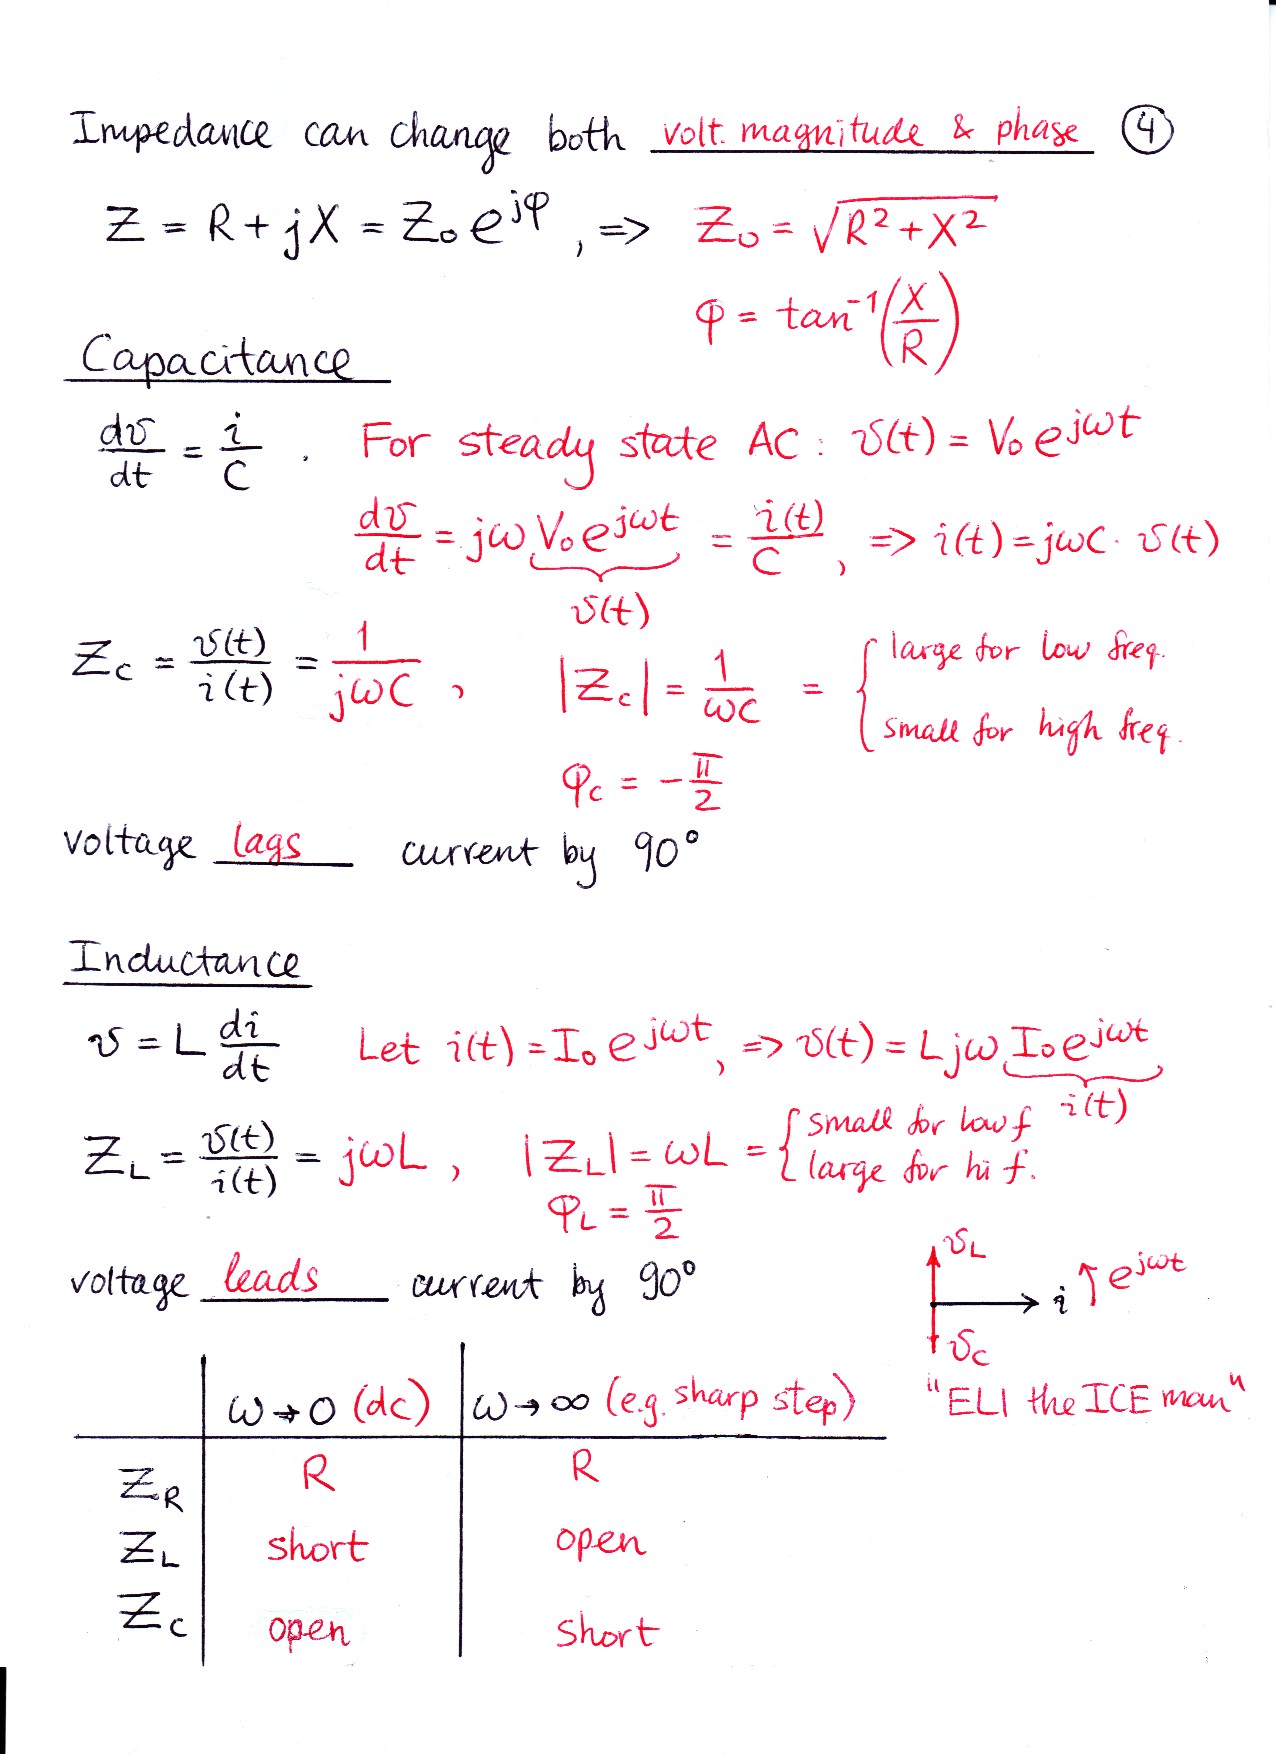 Impedance can change both volt. magnitude & phase ④
Z = R + jX = Z₀e^{jφ}, => Z₀ = √(R² + X²)
φ = tan⁻¹(X/R)
Capacitance
dv/dt = i/C . For steady state AC : v(t) = V₀e^{jωt}
dv/dt = jωV₀e^{jωt} = i(t)/C, => i(t) = jωC · v(t)
v(t)
Z_C = v(t)/i(t) = 1/jωC , |Z_C| = 1/ωC = { large for low freq.
small for high freq.
φ_C = -π/2
voltage lags current by 90°
Inductance
v = L di/dt Let i(t) = I₀e^{jωt}, => v(t) = LjωI₀e^{jωt}
i(t)
Z_L = v(t)/i(t) = jωL , |Z_L| = ωL = { small for low f
large for hi f.
φ_L = π/2
voltage leads current by 90°
v_L
i ↑ e^{jωt}
v_C
"ELI the ICE man"
ω → 0 (dc) ω → ∞ (e.g. sharp step)
Z_R R R
Z_L short open
Z_C open short